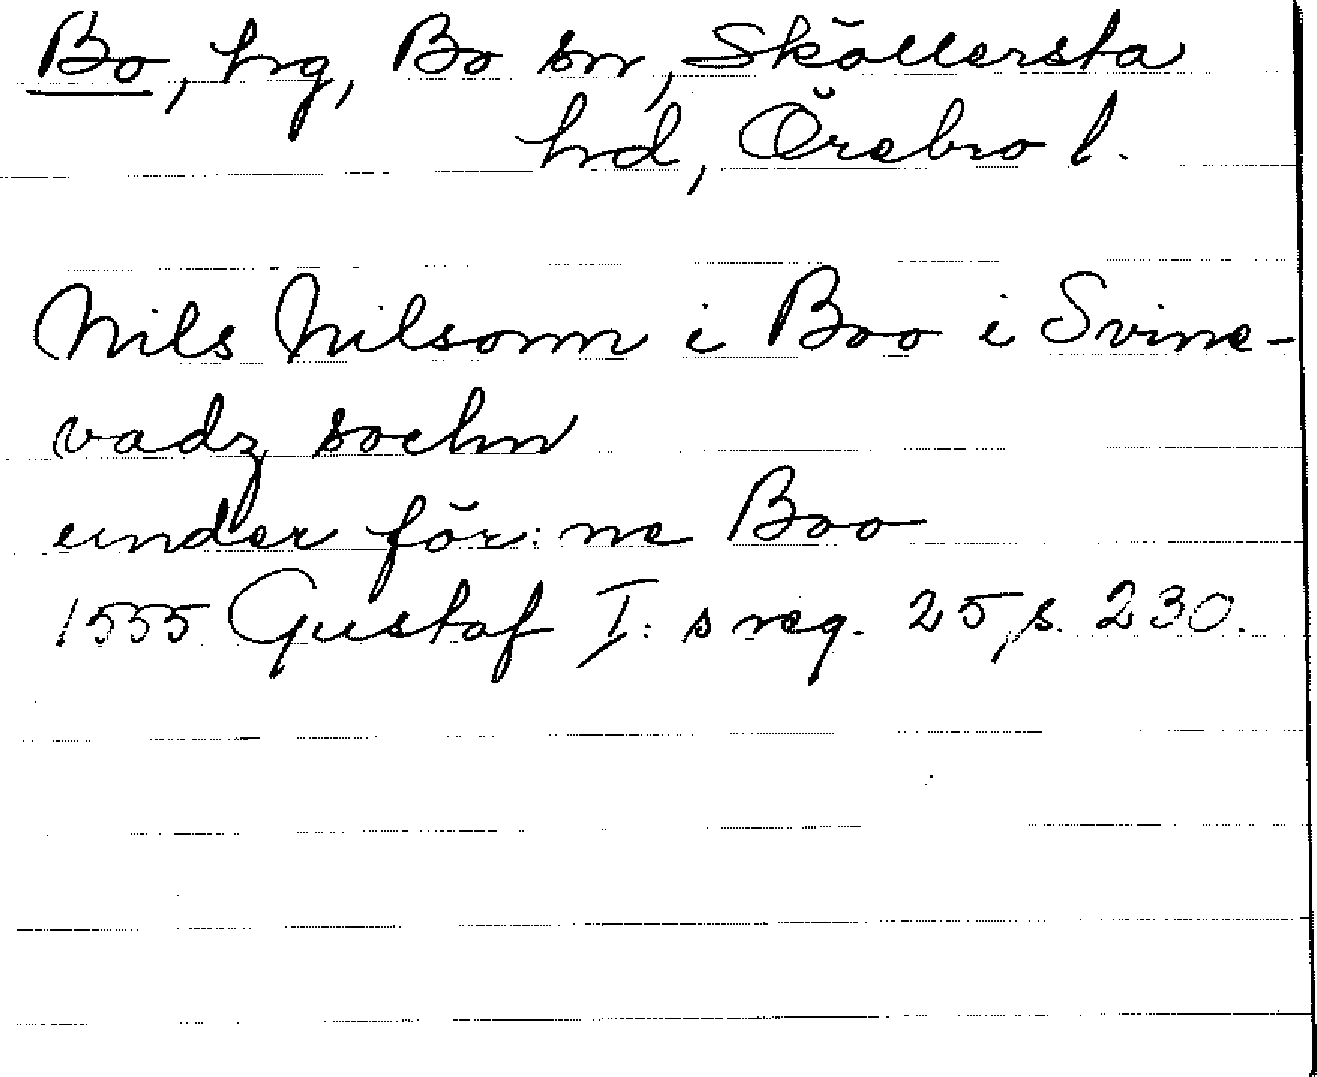 Bo, hg, Bo sn, Sköllersta
hd, Örebro l.
Nils Nilsonn i Boo i Svine-
vadz sochn
under för:ne Boo
1555 Gustaf I:s reg. 25, s. 230.